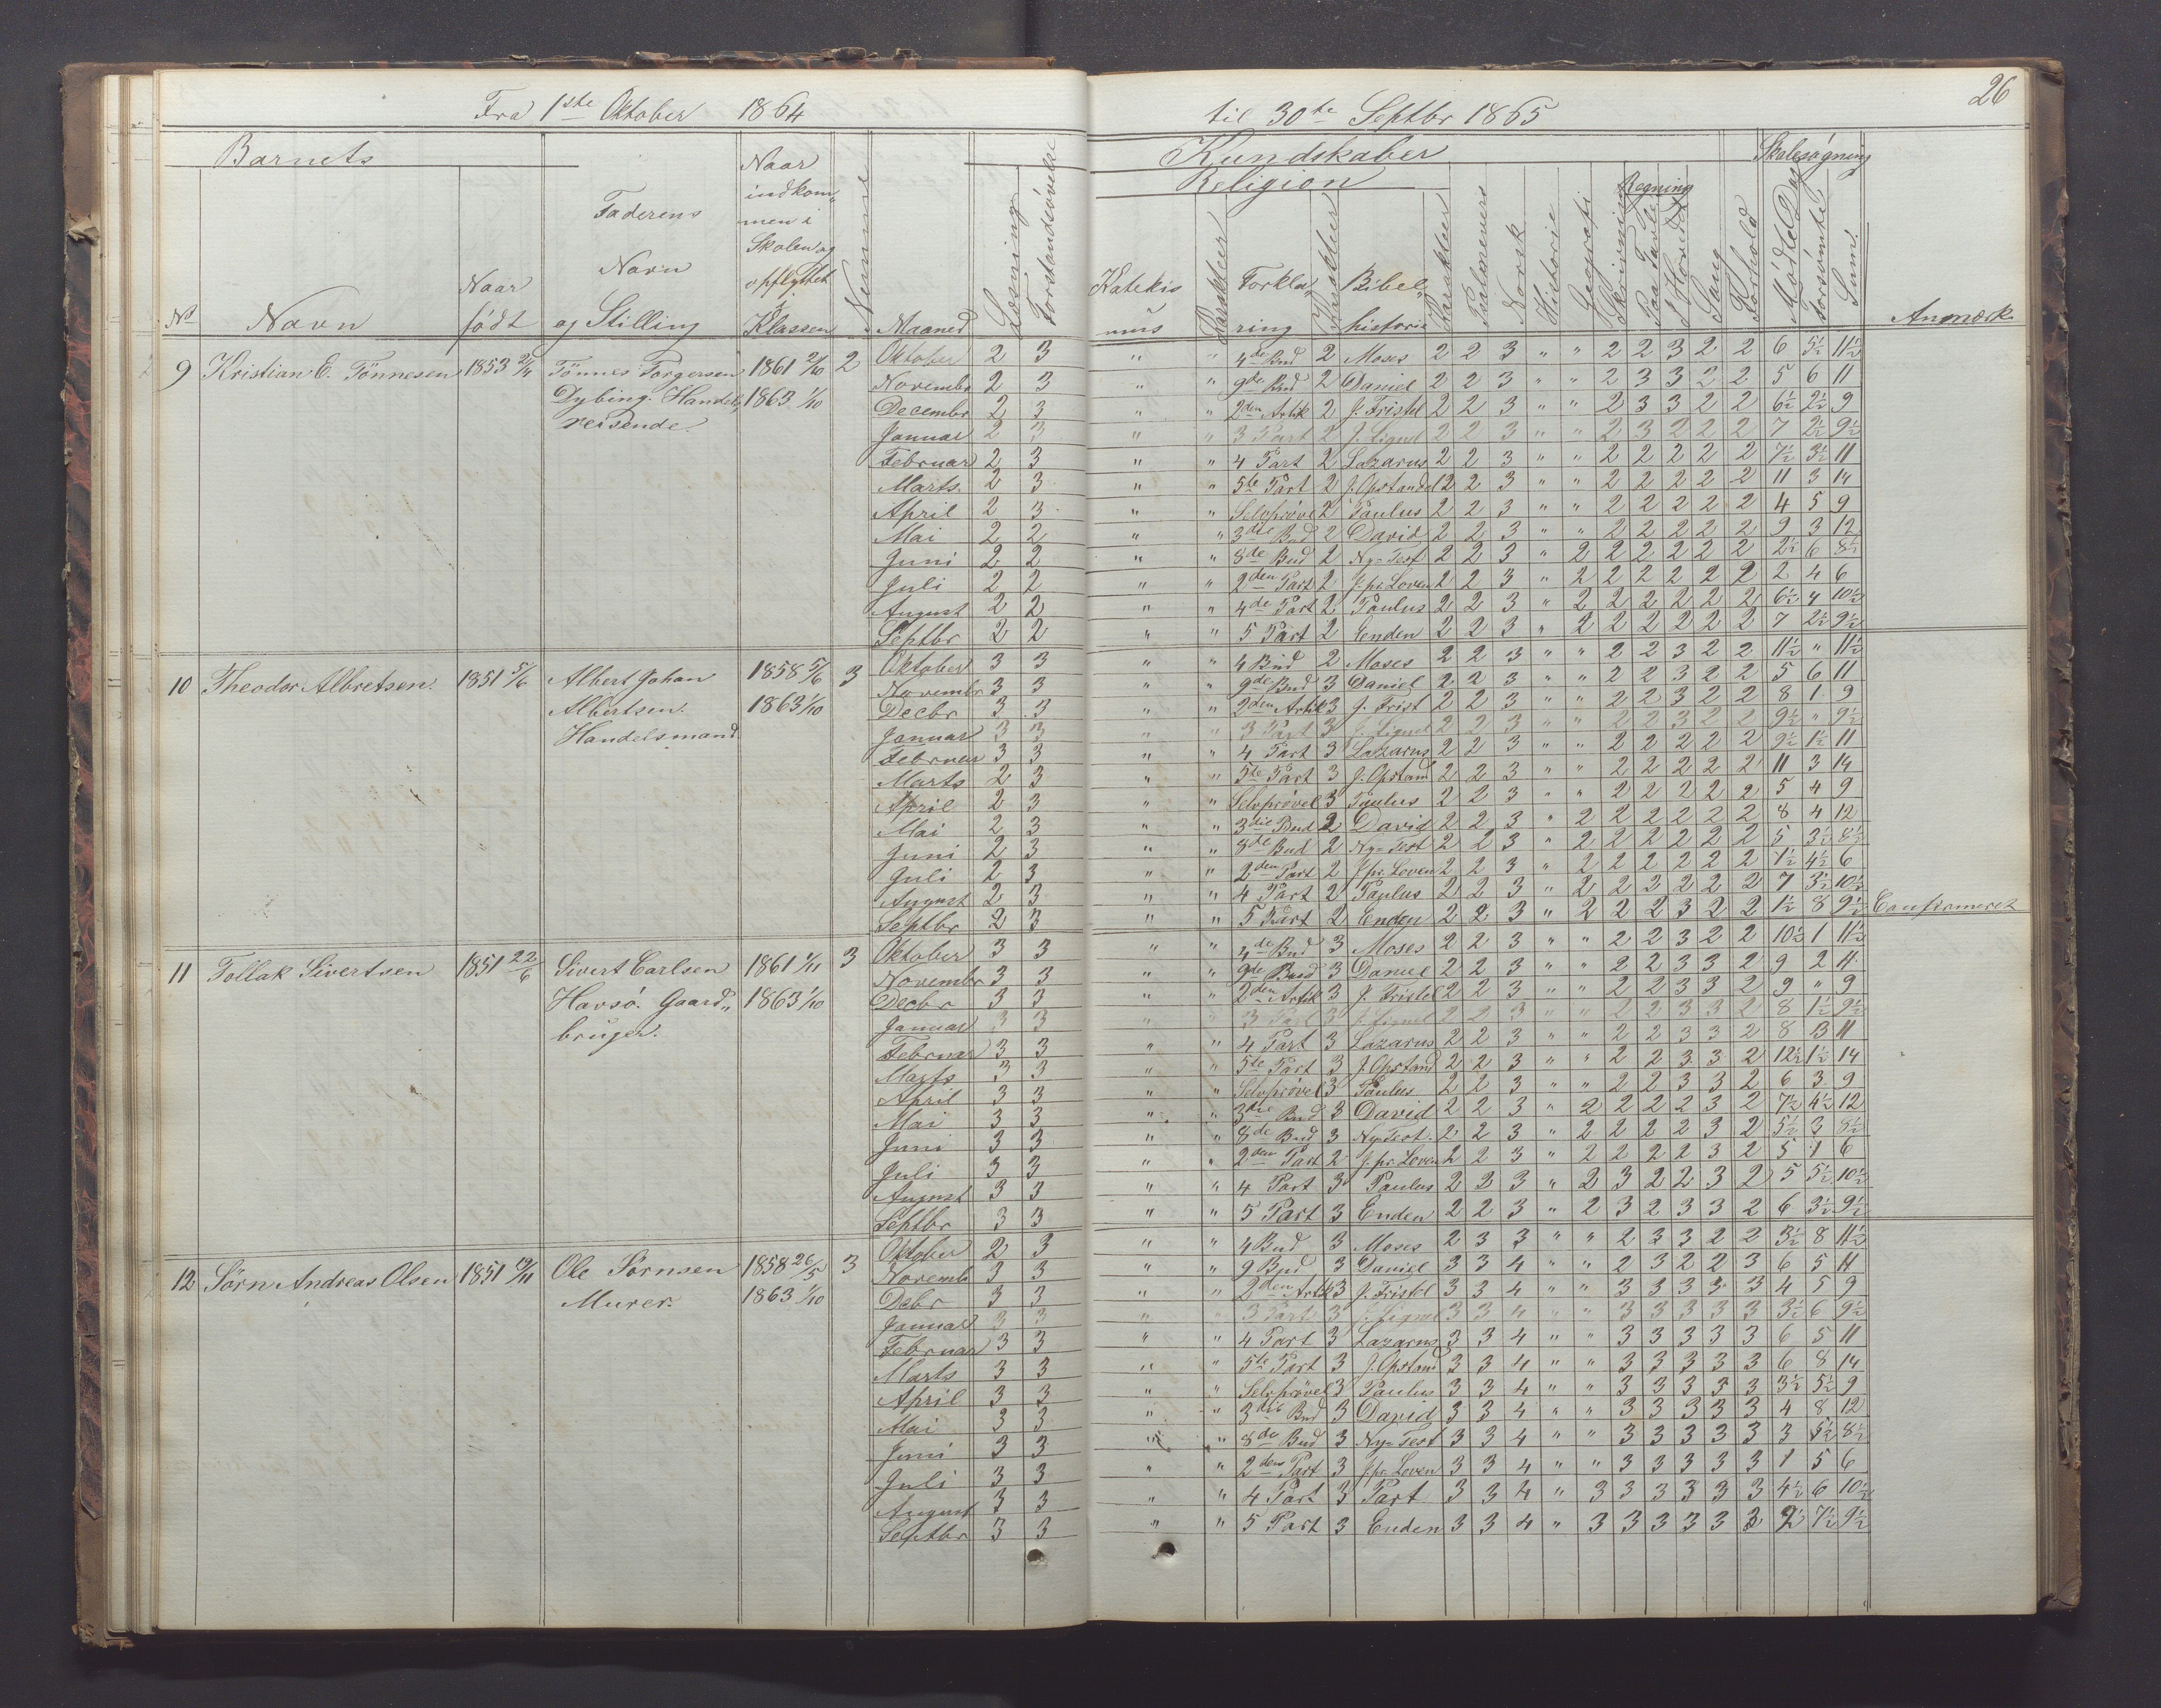 Fra 1ste Oktober 1864 til 30te Septbr 1865
26
Barnets
Kundskaber
Skolesøgning
Religion
Regning
No
Navn
Naar født
Faderens Navn og Stilling
Naar indkommen i Skolen og opflyttet Klassen
Nummer
Maaned
Læsning
Forstandsøvelse
Katekismus
Karakteer
Forklaring
Karakteer
Bibelhistorie
Karakteer
Psalmevers
Norsk
Historie
Geografi
Skrivning
Paa Tavle
I Hovedet
Sang
Forhold
Mødte Dage
Forsømte
Sum.
Anmærk.
9 Kristian E. Tönnesen 1853 Tönnes Torgersen 1861 2/10 2
Dybing. Handels 1863 1/10
reisende.
Oktober 2 3 " " 4de Bud 2 Moses 2 2 3 " " 2 2 3 2 2 6 5½ 11½
Novembr 2 3 " " 9de Bud 2 Daniel 2 2 3 " " 2 3 3 2 2 5 6 11
Decembr 2 3 " " 2den Artik 2 J. Fristel 2 2 3 " " 2 3 3 2 2 6½ 2½ 9
Januar 2 3 " " 3 Part 2 J. Lignel 2 2 3 " " 2 3 2 2 2 7 2½ 9½
Februar 2 3 " " 4 Part 2 Lazarus 2 2 3 " " 2 2 2 2 2 7½ 3½ 11
Marts 2 3 " " 5te Part 2 J. Opstandel 2 2 3 " " 2 2 2 2 2 11 3 14
April 2 3 " " Selvprövel 2 Paulus 2 2 3 " " 2 2 2 2 2 4 5 9
Mai 2 2 " " 3die Bud 2 David 2 2 3 " " 2 2 2 2 2 9 3 12
Juni 2 2 " " 8de Bud 2 Ny=Test 2 2 3 " 2 2 2 2 2 2 2½ 6 8½
Juli 2 2 " " 2den Part 2 J. pr. Loven 2 2 3 " 2 2 2 2 2 2 2 4 6
August 2 2 " " 4de Part 2 Paulus 2 2 3 " 2 2 2 2 2 2 6½ 4 10½
Septbr 2 2 " " 5 Part 2 Enden 2 2 3 " 2 2 2 2 2 2 7 2½ 9½
10 Theodor Albretsen. 1851 5/6 Albert Johan 1858 5/6 3
Albertsen. 1863 1/10
Handelsmand
Oktober 3 3 " " 4 Bud 2 Moses 2 2 3 " " 2 2 3 2 2 11½ " 11½
Novembr 3 3 " " 9de Bud 3 Daniel 2 2 3 " " 2 2 3 2 2 5 6 11
Decbr 3 3 " " 2den Artik 3 J. Frist 2 2 3 " " 2 2 3 2 2 8 1 9
Januar 3 3 " " 3 Part 3 J. Lignel 2 2 3 " " 2 2 3 2 2 9½ " 9½
Februar 3 3 " " 4 Part 3 Lazarus 2 2 3 " " 2 2 2 2 2 9½ 1½ 11
Marts 2 3 " " 5te Part 3 J. Opstand 2 2 3 " " 2 2 2 2 2 11 3 14
April 2 3 " " Selvprövel 3 Paulus 2 2 3 " " 2 2 2 2 2 5 4 9
Mai 2 3 " " 3die Bud 2 David 2 2 3 " 2 2 2 2 2 2 8 4 12
Juni 2 3 " " 8de Bud 2 Ny=Test 2 2 3 " 2 2 2 2 2 2 5 3½ 8½
Juli 2 3 " " 2den Part 2 J. pr. Loven 2 2 3 " 2 2 2 2 2 2 1½ 4½ 6
August 2 3 " " 4 Part 2 Paulus 2 2 3 " 2 2 2 2 2 2 7 3½ 10½
Septbr 2 3 " " 5 Part 2 Enden 2 2 3 " 2 2 2 3 2 2 1½ 8 9½ Confirmeret
11 Tollak Sivertsen 1851 22/6 Sivert Carlsen 1861 1/11 3
Havsö. Gaard„ 1863 1/10
bruger.
Oktober 3 3 " " 4de Bud 3 Moses 2 2 3 " " 2 2 3 2 2 10½ 1 11½
Novembr 3 3 " " 9de Bud 3 Daniel 2 2 3 " " 2 2 3 3 2 9 2 11
Decbr 3 3 " " 2den Artik 3 J. Fristel 2 2 3 " " 2 2 3 3 2 9 " 9
Januar 3 3 " " 3 Part 3 J. Lignel 2 2 3 " " 2 2 3 3 2 8 1½ 9½
Februar 3 3 " " 4 Part 3 Lazarus 2 2 3 " " 2 2 3 3 2 8 3 11
Marts 3 3 " " 5te Part 3 J. Opstand 2 2 3 " " 2 2 3 3 2 12½ 1½ 14
April 3 3 " " Selvprövel 3 Paulus 2 2 3 " " 2 2 3 3 2 6 3 9
Mai 3 3 " " 3die Bud 3 David 2 2 3 " 2 2 2 2 3 2 7½ 4½ 12
Juni 3 3 " " 8de Bud 3 Ny=Test. 2 2 3 " 2 2 2 2 3 2 5½ 3 8½
Juli 3 3 " " 2den Part 2 J. pr. Loven 2 2 3 " 2 2 2 2 3 2 5 1 6
August 3 3 " " 4 Part 3 Paulus 2 3 3 " 2 3 2 2 3 2 5 5½ 10½
Septbr 3 3 " " 5 Part 3 Enden 2 2 3 " 2 3 2 3 3 2 6 3½ 9½
12 Sörn Andreas Olsen 1851 Ole Sörnsen 1858 26/5 3
Murer. 1863 1/10
Oktober 2 3 " " 4 Bud 3 Moses 2 3 3 " " 2 3 3 2 2 3½ 8 11½
Novembr 3 3 " " 9 Bud 3 Daniel 3 3 4 " " 2 3 2 2 3 6 5 11
Debr 3 3 " " 2den Artik 3 J. Fristel 3 3 4 " " 3 3 3 3 3 4 5 9
Januar 3 3 " " 3 Part 3 J. Lignel 3 3 4 " " 3 3 3 3 3 3½ 6 9½
Februar 3 3 " " 4 Part 3 Lazarus 3 3 4 " " 3 3 3 3 3 6 5 11
Marts 3 3 " " 5te Part 3 J. Opstand 3 3 4 " " 3 3 3 3 3 6 8 14
April 3 3 " " Selvprövel 3 Paulus 3 3 4 " " 3 3 3 3 3 3½ 5½ 9
Mai 3 3 " " 3die Bud 3 David 3 3 4 " " 3 3 3 3 3 4 8 12
Juni 3 3 " " 8de Bud 3 Ny=Test 3 3 4 " " 3 3 3 3 3 3 5½ 8½
Juli 3 3 " " 2den Part 3 J. pr. Loven 3 3 4 " " 3 3 3 3 3 1 5 6
August 3 3 " " 4 Part 3 Part 3 3 4 " 3 3 3 3 3 3 4½ 6 10½
Septbr 3 3 " " 5 Part 3 Enden 3 3 4 " 3 3 3 3 3 3 2 7½ 9½